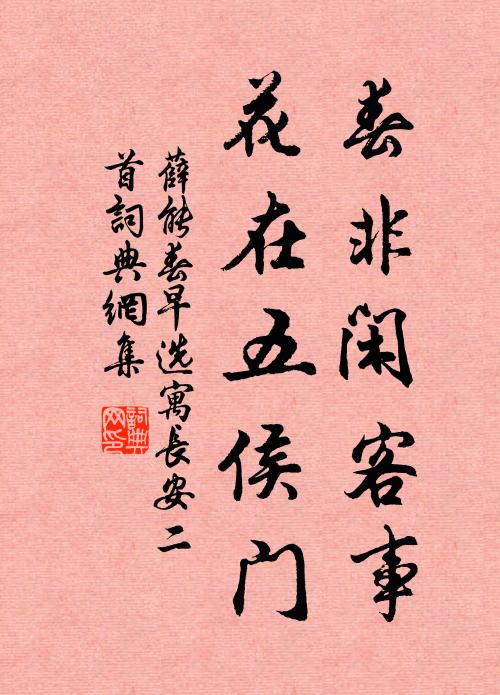 春非闲客事
花在五侯门
薛能春早选寓長安二
首詞典網集
詞典网印